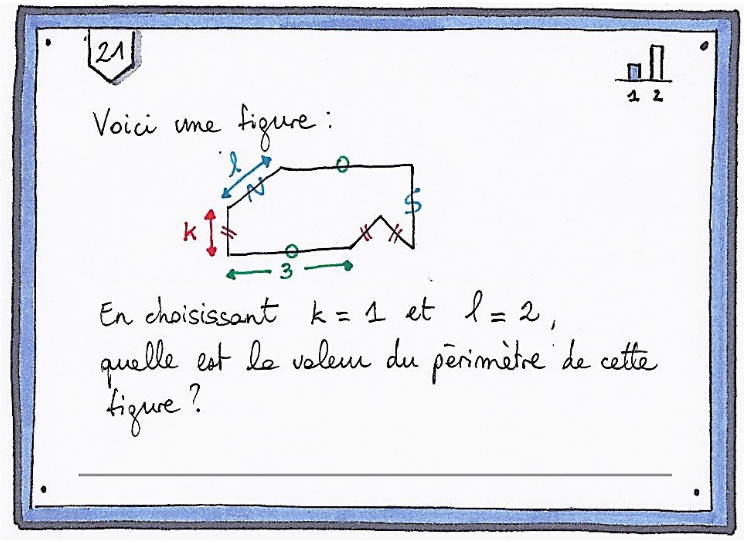 21
1 2
Voici une figure :
l
k
3
En choisissant k = 1 et l = 2,
quelle est la valeur du périmètre de cette
figure ?